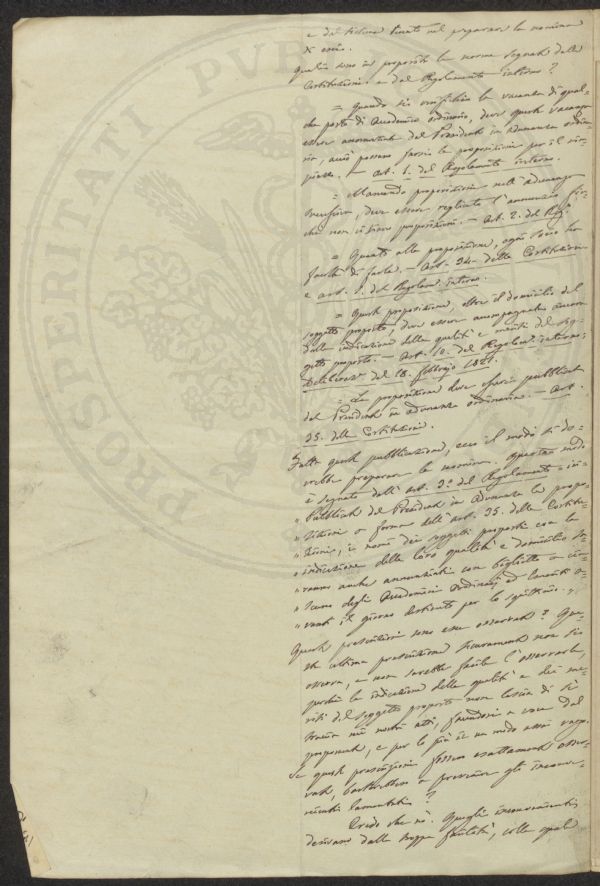 e dal sistema tenuto nel preparare la nomina
di essi.
Quali sono in proposito le norme segnate dalle
Costituzioni e dal Regolamento interno?
= Quando si verifichi la vacanza di qual-
che posto di Accademico ordinario, deve questa vacanza
essere annunziata dal Presidente in Adunanza ordina-
ria, acciò possano farsi le proposizioni per il rim-
piazzo. — Art. 1. del Regolamento interno.
= Mancando proposizioni nell'adunanza
successiva, deve essere replicato l'annunzio fin-
chè non vi siano proposizioni. — Art. 2. del Reg.º
= Quanto alla proposizione, ogni socio ha
facoltà di farla. — Art. 34. delle Costituzioni
e art. 1. del Regolam. interno.
= Queste proposizioni, oltre il domicilio del
soggetto proposto, deve essere accompagnata ancora
dalla indicazione delle qualità e meriti del sog-
getto proposto. — Art. 10. del Regolam. interno:
Deliberaz. del 18. febbrajo 1827.
= La proposizione deve essere pubblicata
dal Presidente in adunanza ordinaria. — Art.
35. delle Costituzioni.
Fatta questa pubblicazione, ecco il modo di do-
versi preparare la nomina. Questo modo
è segnato dall'art. 3.º del Regolamento = ivi =
" Pubblicata dal Presidente in Adunanza la propo-
" sizione a forma dell'art. 35. delle Costitu-
" zioni, i nomi dei soggetti proposti con la
" indicazione delle loro qualità e domicilio sa-
" ranno anche annunziati con biglietto a cia-
" scuno degli Accademici Ordinarj ed Emeriti a-
" vanti il giorno destinato per lo squittinio. "
Queste prescrizioni sono esse osservate? Que-
st'ultima prescrizione sicuramente non si
osserva, e non sarebbe facile l'osservarla,
perchè la indicazione delle qualità e dei me-
riti del soggetto proposto non lascia di sè
traccia nei nostri atti, facendosi a voce dal
proponente, e per lo più in un modo assai vago.
Se queste prescrizioni fossero esattamente osser-
vate, basterebbero a prevenire gli inconve-
nienti lamentati?
Credo che nò. Quegli inconvenienti
derivano dalla troppa facilità, colla quale